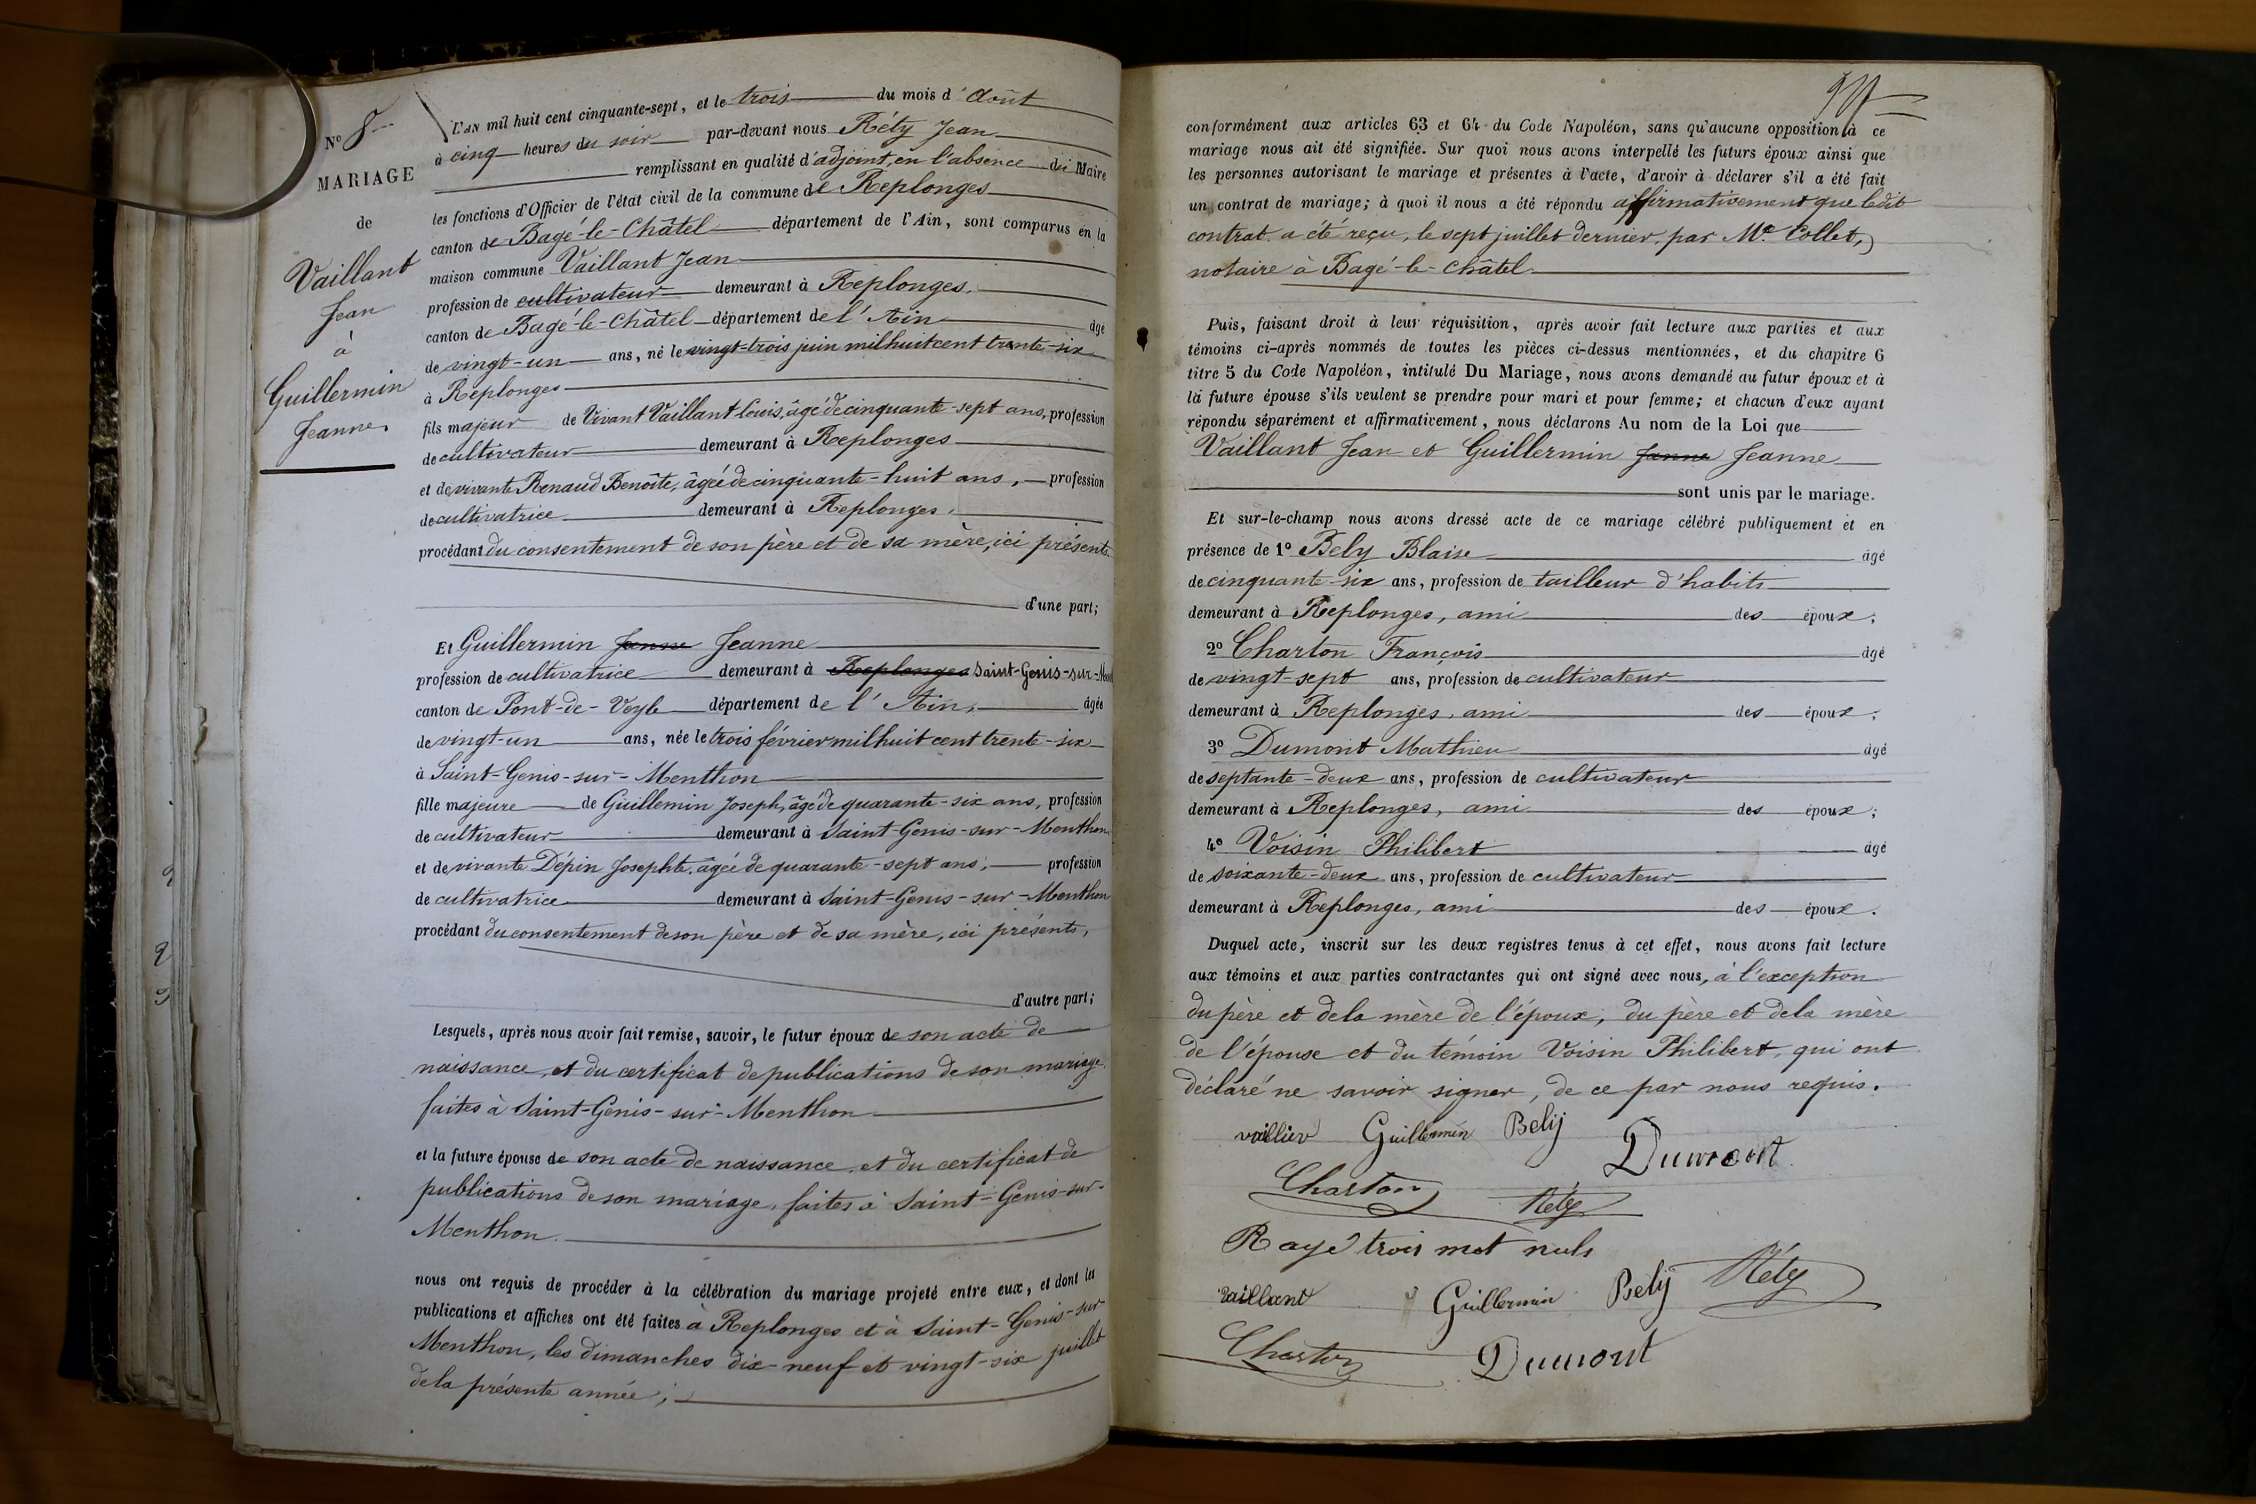 N° 8
MARIAGE
de
Vaillant
Jean
à
Guillermin
Jeanne.
L'AN mil huit cent cinquante-sept, et le trois du mois d'Août
à cinq heures du soir par-devant nous Réty Jean
remplissant en qualité d'adjoint, en l'absence du Maire
les fonctions d'Officier de l'état civil de la commune de Replonges
canton de Bagé-le-Châtel département de l'Ain, sont comparus en la
maison commune Vaillant Jean
profession de cultivateur demeurant à Replonges,
canton de Bagé-le-Châtel département de l'Ain âgé
de vingt-un ans, né le vingt-trois juin mil huit cent trente-six
à Replonges
fils majeur de Vivant Vaillant Louis, âgé de cinquante-sept ans, profession
de cultivateur demeurant à Replonges
et de vivante Renaud Benoîte, âgée de cinquante-huit ans, profession
de cultivatrice demeurant à Replonges,
procédant du consentement de son père et de sa mère, ici présents
d'une part;
Et Guillermin Janne Jeanne
profession de cultivatrice demeurant à Replonges Saint-Genis-sur-Ment
canton de Pont-de-Veyle département de l'Ain, âgée
de vingt-un ans, née le trois février mil huit cent trente-six
à Saint-Genis-sur-Menthon
fille majeure de Guillemin Joseph, âgé de quarante-six ans, profession
de cultivateur demeurant à Saint-Genis-sur-Menthon
et de vivante Dépin Josephte, âgée de quarante-sept ans, profession
de cultivatrice demeurant à Saint-Genis-sur-Menthon
procédant du consentement de son père et de sa mère, ici présents,
d'autre part;
Lesquels, après nous avoir fait remise, savoir, le futur époux de son acte de
naissance, et du certificat de publications de son mariage
faites à Saint-Genis-sur-Menthon
et la future épouse de son acte de naissance, et du certificat de
publications de son mariage, faites à Saint-Genis-sur-
Menthon.
nous ont requis de procéder à la célébration du mariage projeté entre eux, et dont les
publications et affiches ont été faites à Replonges et à Saint-Genis-sur-
Menthon, les dimanches dix-neuf et vingt-six juillet
de la présente année;
conformément aux articles 63 et 64 du Code Napoléon, sans qu'aucune opposition à ce
mariage nous ait été signifiée. Sur quoi nous avons interpellé les futurs époux ainsi que
les personnes autorisant le mariage et présentes à l'acte, d'avoir à déclarer s'il a été fait
un contrat de mariage; à quoi il nous a été répondu affirmativement que ledit
contrat a été reçu, le sept juillet dernier, par Me. Collet,
notaire à Bagé-le-Châtel.
Puis, faisant droit à leur réquisition, après avoir fait lecture aux parties et aux
témoins ci-après nommés de toutes les pièces ci-dessus mentionnées, et du chapitre 6
titre 5 du Code Napoléon, intitulé Du Mariage, nous avons demandé au futur époux et à
la future épouse s'ils veulent se prendre pour mari et pour femme; et chacun d'eux ayant
répondu séparément et affirmativement, nous déclarons Au nom de la Loi que
Vaillant Jean et Guillermin Janne Jeanne
sont unis par le mariage.
Et sur-le-champ nous avons dressé acte de ce mariage célébré publiquement et en
présence de 1° Bely Blaise âgé
de cinquante-six ans, profession de tailleur d'habits
demeurant à Replonges, ami des époux;
2° Charton François âgé
de vingt-sept ans, profession de cultivateur
demeurant à Replonges, ami des époux;
3° Dumont Mathieu âgé
de septante-deux ans, profession de cultivateur
demeurant à Replonges, ami des époux;
4° Voisin Philibert âgé
de soixante-deux ans, profession de cultivateur
demeurant à Replonges, ami des époux.
Duquel acte, inscrit sur les deux registres tenus à cet effet, nous avons fait lecture
aux témoins et aux parties contractantes qui ont signé avec nous, à l'exception
du père et de la mère de l'époux, du père et de la mère
de l'épouse et du témoin Voisin Philibert, qui ont
déclaré ne savoir signer, de ce par nous requis.
Guillermin Belij
Dumont
Charton Réty
Rayé trois mot nuls
vaillant Guillermin Belij Réty
Charton Dumont